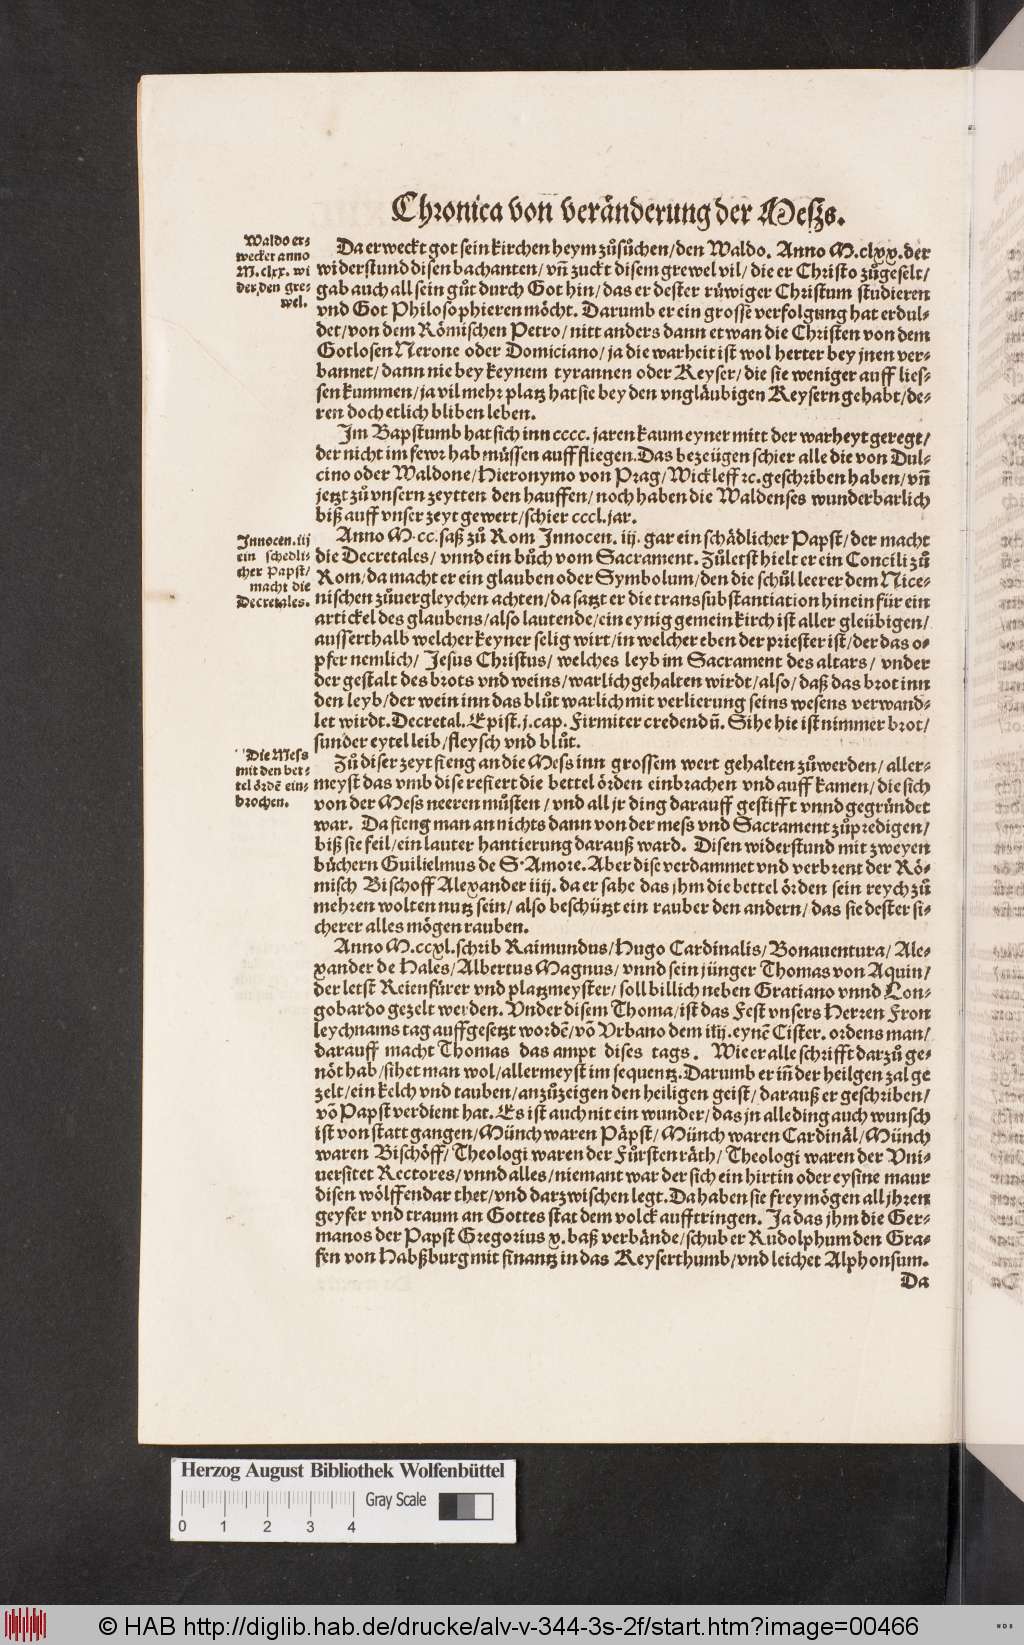 Chronica von veränderung der Meſzs.
Waldo er⸗
wecket anno
M. clxx. wi
der, den gre⸗
wel.
Da erweckt got sein kirchen heym zůsůchen / den Waldo. Anno M. clxx. der
widerstund disen bachanten / vñ zuckt disem grewel vil / die er Christo zůgeselt /
gab auch all sein gůt durch Got hin / das er dester růwiger Christum studieren
vnd Got Philosophieren möcht. Darumb er ein grosse verfolgung hat erdul⸗
det / von dem Römischen Petro / nitt anders dann etwan die Christen von dem
Gotlosen Nerone oder Domiciano / ja die warheit ist wol herter bey jnen ver⸗
bannet / dann nie bey keynem tyrannen oder Keyser / die sie weniger auff lies⸗
sen kummen / ja vil mehr platz hat sie bey den vngläubigen Keysern gehabt / de⸗
ren doch etlich bliben leben.
Im Bapstumb hat sich inn cccc. jaren kaum eyner mitt der warheyt geregt /
der nicht im fewr hab müssen auff fliegen. Das bezeügen schier alle die von Dul⸗
cino oder Waldone / Hieronymo von Prag / Wickleff ꝛc. geschriben haben / vñ
jetzt zů vnsern zeytten den hauffen / noch haben die Waldenses wunderbarlich
biß auff vnser zeyt gewert / schier cccl. jar.
Innocen. iij
ein schedli⸗
cher Papst /
macht die
Decretales.
Anno M. cc. saß zů Rom Innocen. iij. gar ein schädlicher Papst / der macht
die Decretales / vnnd ein bůch vom Sacrament. Zůletst hielt er ein Concili zů
Rom / da macht er ein glauben oder Symbolum / den die schůlleerer dem Nice⸗
nischen zůuergleychen achten / da satzt er die transsubstantiation hinein für ein
artickel des glaubens / also lautende / ein eynig gemein kirch ist aller gleübigen /
ausserthalb welcher keyner selig wirt / in welcher eben der priester ist / der das o⸗
pfer nemlich / Jesus Christus / welches leyb im Sacrament des altars / vnder
der gestalt des brots vnd weins / warlich gehalten wirdt / also / daß das brot inn
den leyb / der wein inn das blůt warlich mit verlierung seins wesens verwand⸗
let wirdt. Decretal. Epist. j. cap. Firmiter credendũ. Sihe hie ist nimmer brot /
sunder eytel leib / fleysch vnd blůt.
Die Mess
mit den bet⸗
tel ördẽ ein⸗
brochen.
Zů diser zeyt fieng an die Mess inn grossem wert gehalten zůwerden / aller⸗
meyst das vmb dise refiert die bettel örden einbrachen vnd auff kamen / die sich
von der Mess neeren můsten / vnd all jr ding darauff gestifft vnnd gegründet
war. Da fieng man an nichts dann von der mess vnd Sacrament zůpredigen /
biß sie feil / ein lauter hantierung darauß ward. Disen widerstund mit zweyen
bůchern Guilielmus de S. Amore. Aber dise verdammet vnd verbrent der Rö⸗
misch Bischoff Alexander iiij. da er sahe das jhm die bettel örden sein reych zů
mehren wolten nutz sein / also beschützt ein rauber den andern / das sie dester si⸗
cherer alles mögen rauben.
Anno M. ccxl. schrib Raimundus / Hugo Cardinalis / Bonauentura / Ale⸗
xander de Hales / Albertus Magnus / vnnd sein jünger Thomas von Aquin /
der letst Reienfürer vnd platzmeyster / soll billich neben Gratiano vnnd Lon⸗
gobardo gezelt werden. Vnder disem Thoma / ist das Fest vnsers Herren Fron
leychnams tag auffgesetzt wordẽ / võ Vrbano dem iiij. eynẽ Cister. ordens man /
darauff macht Thomas das ampt dises tags. Wie er alle schrifft darzů ge⸗
nöt hab / sihet man wol / allermeyst im sequentz. Darumb er iñ der heilgen zal ge
zelt / ein kelch vnd tauben / anzůzeigen den heiligen geist / darauß er geschriben /
võ Papst verdient hat. Es ist auch nit ein wunder / das jn alle ding auch wunsch
ist von statt gangen / Münch waren Päpst / Münch waren Cardinäl / Münch
waren Bischöff / Theologi waren der Fürsten räth / Theologi waren der Vni⸗
uersitet Rectores / vnnd alles / niemant war der sich ein hirt in oder eysine maur
disen wölffen dar thet / vnd darzwischen legt. Da haben sie frey mögen all jhren
geyfer vnd traum an Gottes stat dem volck aufftringen. Ja das jhm die Ger⸗
manos der Papst Gregorius x. baß verbände / schub er Rudolphum den Gra⸗
fen von Habßburg mit finantz in das Keyserthumb / vnd leichet Alphonsum.
Da
Herzog August Bibliothek Wolfenbüttel
Gray Scale
0 1 2 3 4
© HAB http://diglib.hab.de/drucke/alv-v-344-3s-2f/start.htm?image=00466